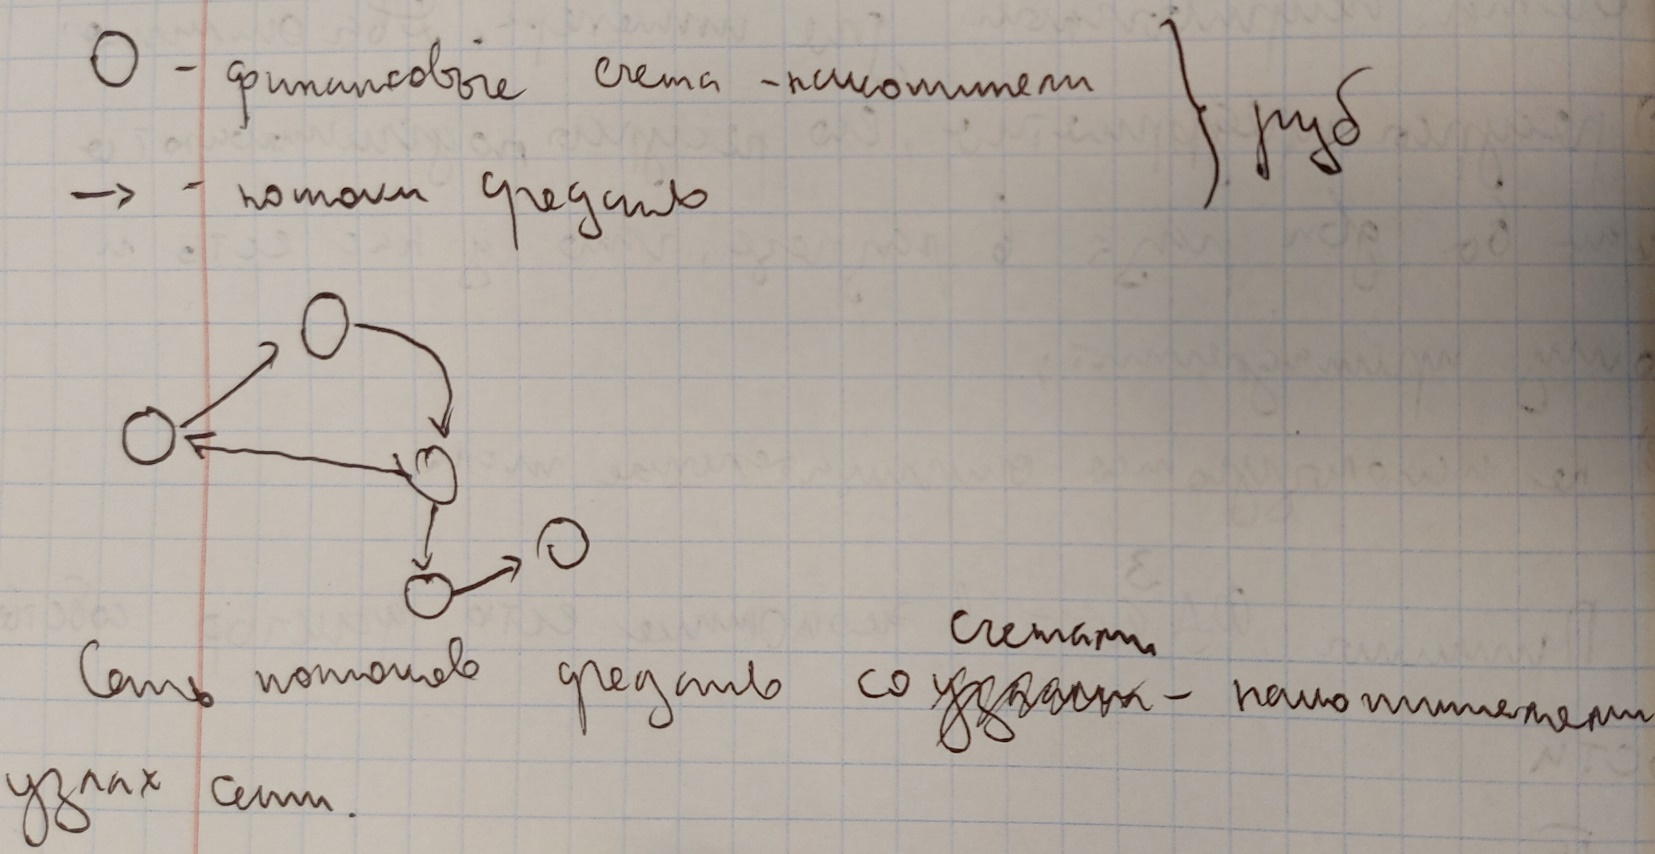 О - финансовые счета - накопители } руб
→ - потоки средств
Сеть потоков средств со счетами - накопителями
узлах сети.